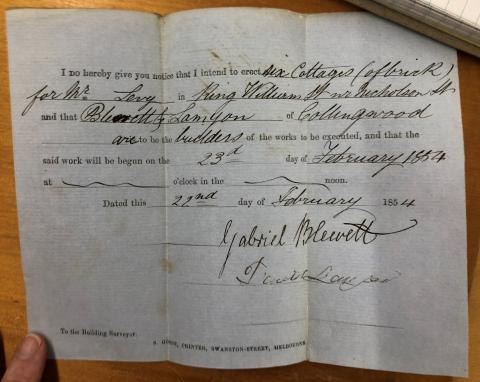 I do hereby give you notice that I intend to erect six Cottages (of brick)
for Mr. Levy in King William St nr Nicholson St
and that Blewett & Lamyon of Collingwood
are to be the builders of the works to be executed, and that the
said work will be begun on the 23rd day of February 1854
at o'clock in the noon.
Dated this 22nd day of February 1854
Gabriel Blewett
To the Building Surveyor.
PRINTER, SWANSTON-STREET, MELBOURNE